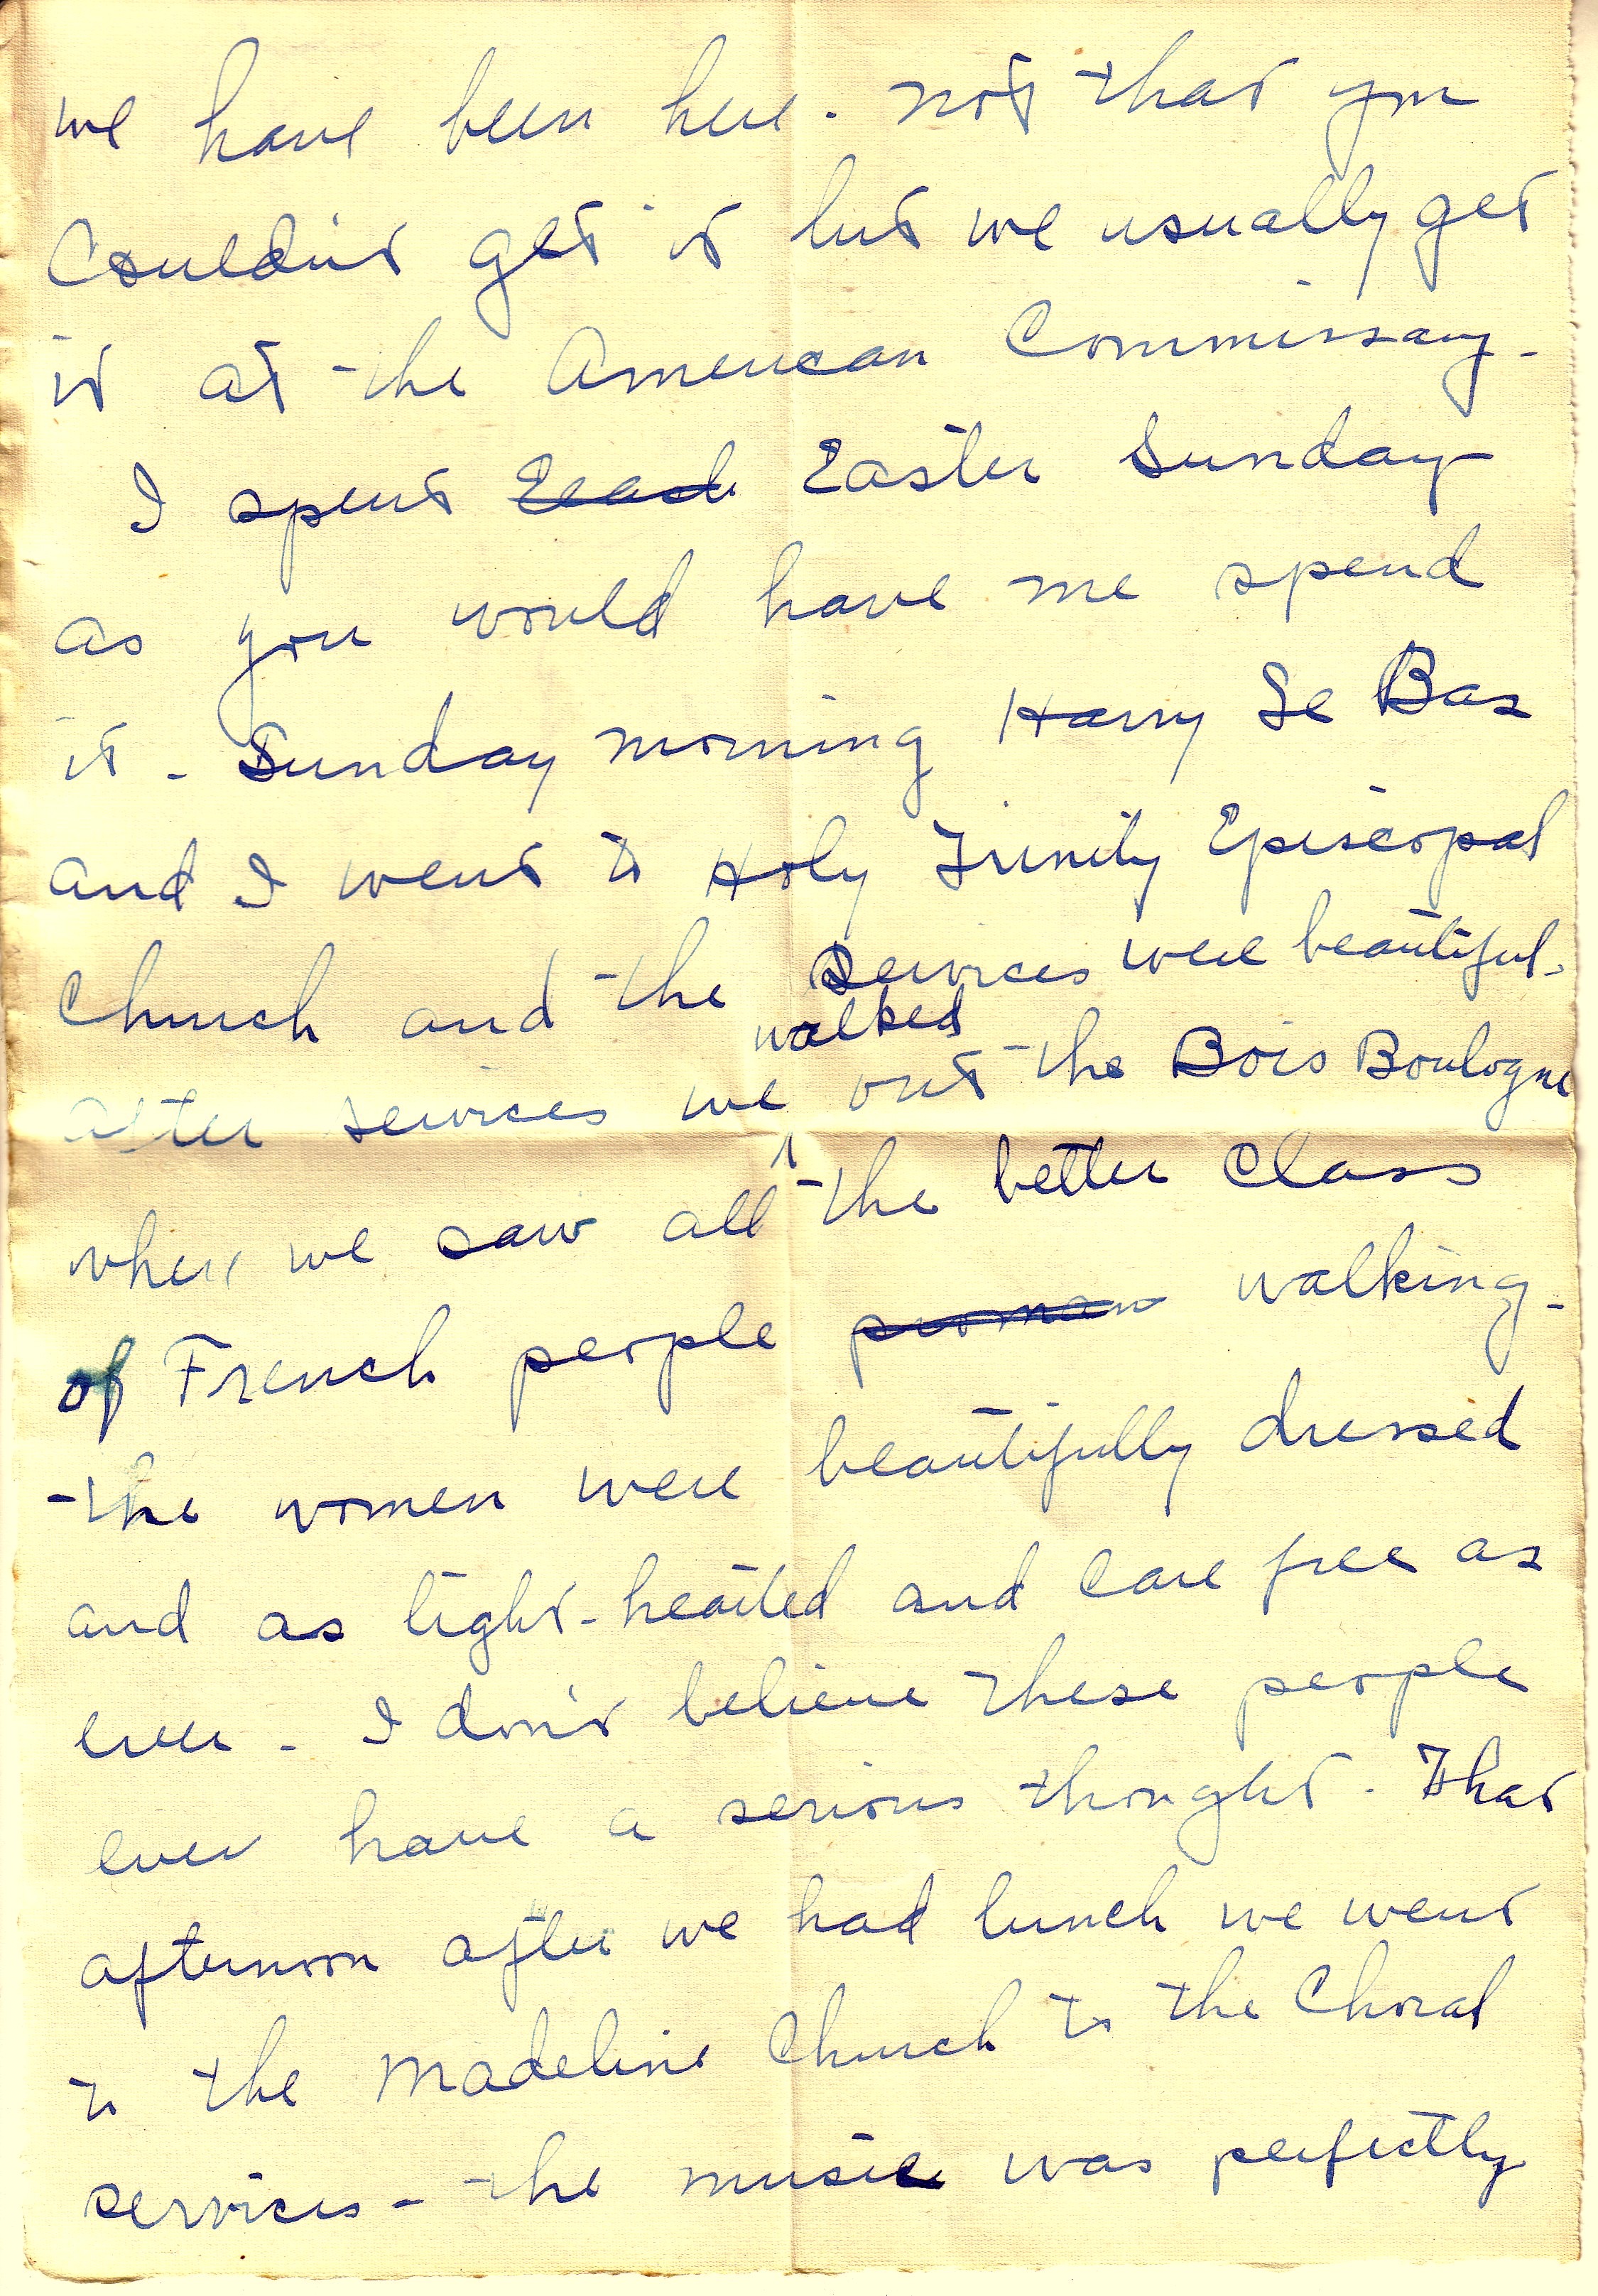 we have been here. not that you
Couldn't get it but we usually get
it at the American Commissary-
I spent Easter Sunday
as you would have me spend
it - Sunday morning Harry Le Bas
and I went to Holy Trinity Episcopal
Church and the services were beautiful.
after services we walked out the Bois Boulogne
where we saw all the better class
of French people walking-
the women were beautifully dressed
and as light-hearted and care free as
ever - I don't believe these people
ever have a serious thought. That
afternoon after we had lunch we went
to the Madeline Church to the Choral
services - the music was perfectly